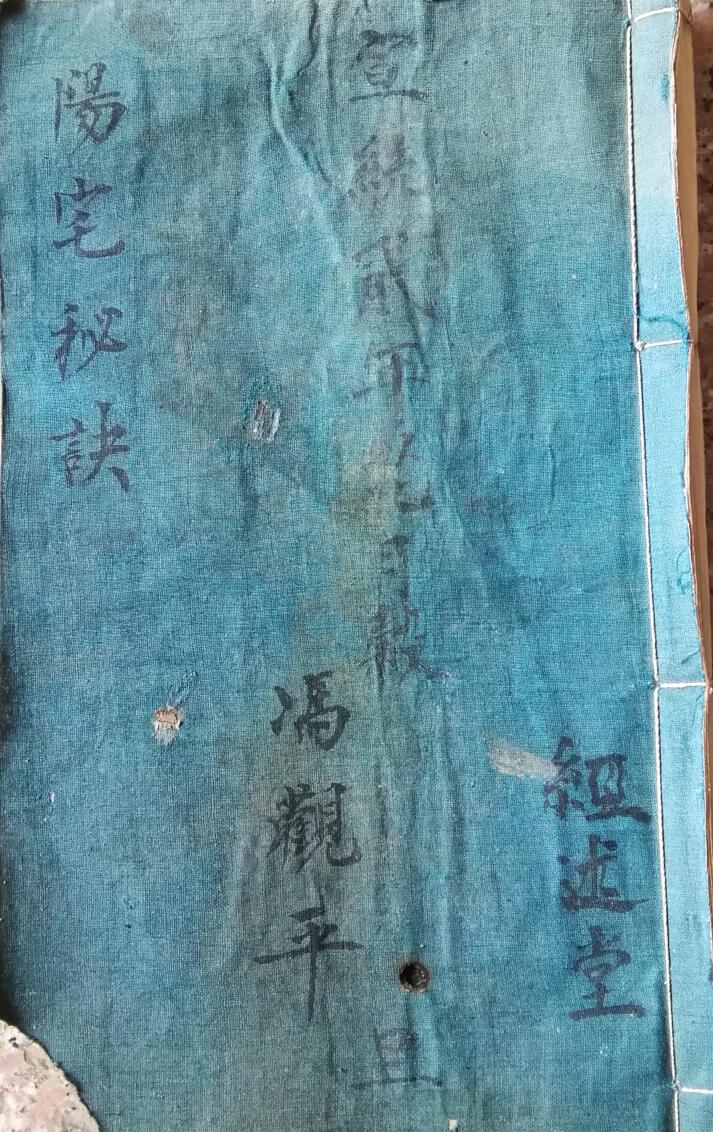 組述堂
宣統貳年月穀旦
馮觀平
陽宅秘訣